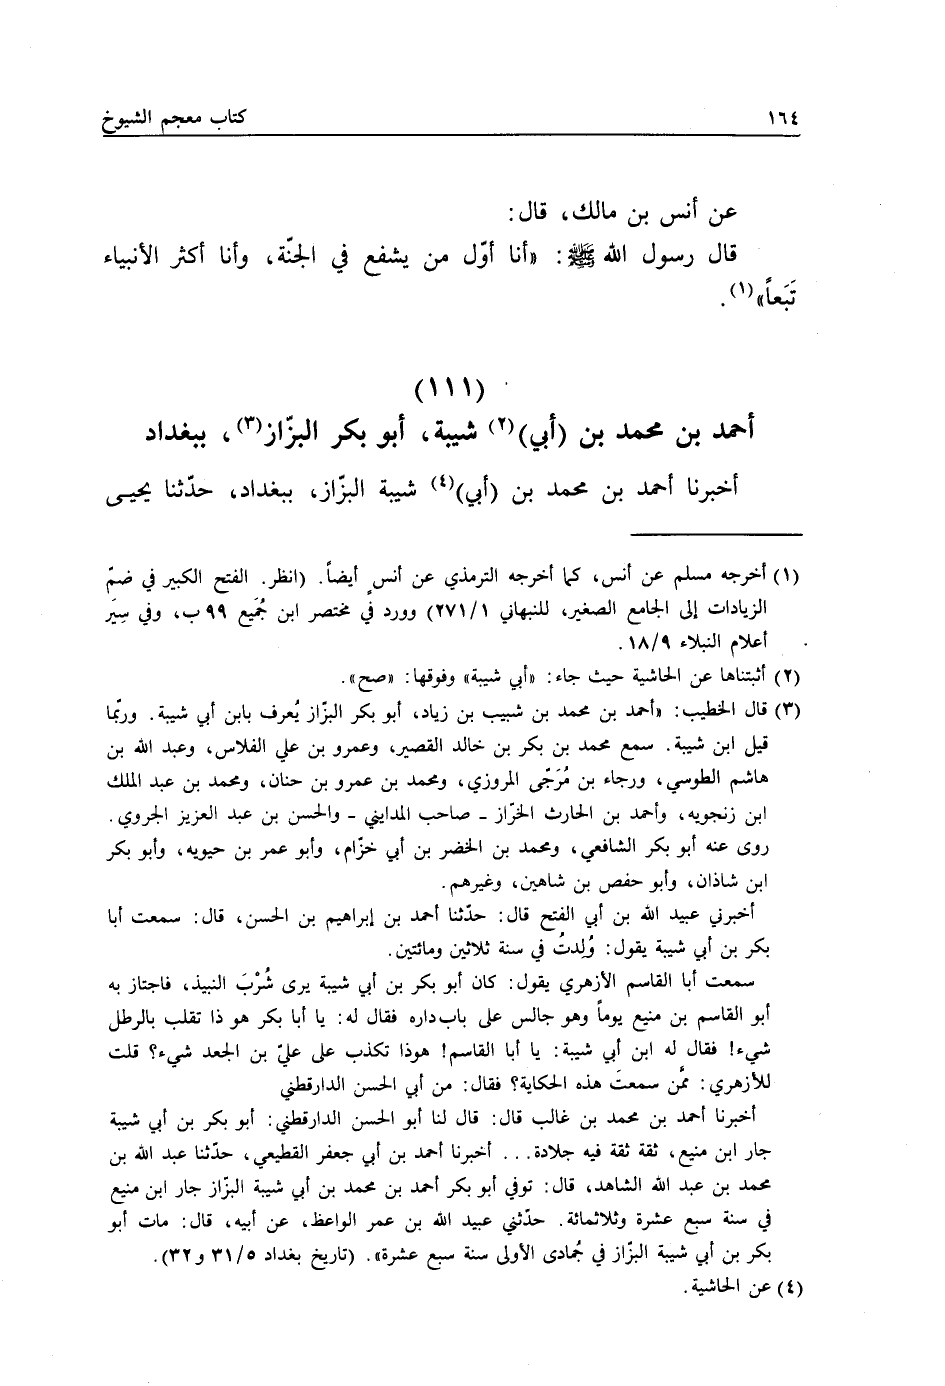 ١٦٤
كتاب معجم الشيوخ
عن أنس بن مالك، قال:
قال رسول الله ﷺ: «أنا أوّل من يشفع في الجنّة، وأنا أكثر الأنبياء
تَبَعاً»(١).
(١١١)
أحمد بن محمد بن (أبي)(٢) شيبة، أبو بكر البزّاز(٣)، ببغداد
أخبرنا أحمد بن محمد بن (أبي)(٤) شيبة البزّاز، ببغداد، حدّثنا يحيـى
(١) أخرجه مسلم عن أنس، كما أخرجه الترمذي عن أنسٍ أيضاً. (انظر. الفتح الكبير في ضمّ
الزيادات إلى الجامع الصغير، للنبهاني ٢٧١/١) وورد في مختصر ابن جُمَيع ٩٩ ب، وفي سِيَر
أعلام النبلاء ١٨/٩.
(٢) أثبتناها عن الحاشية حيث جاء: «أبي شيبة» وفوقها: «صح».
(٣) قال الخطيب: «أحمد بن محمد بن شبيب بن زياد، أبو بكر البزّاز يُعرف بابن أبي شيبة. وربّما
قيل ابن شيبة. سمع محمد بن بكر بن خالد القصير، وعمرو بن علي الفلاس، وعبد الله بن
هاشم الطوسي، ورجاء بن مُرَجّى المروزي، ومحمد بن عمرو بن حنان، ومحمد بن عبد الملك
ابن زنجويه، وأحمد بن الحارث الخرّاز ـ صاحب المدايني ـ والحسن بن عبد العزيز الجروي.
روى عنه أبو بكر الشافعي، ومحمد بن الخضر بن أبي خزّام، وأبو عمر بن حيويه، وأبو بكر
ابن شاذان، وأبو حفص بن شاهين، وغيرهم.
أخبرني عبيد الله بن أبي الفتح قال: حدّثنا أحمد بن إبراهيم بن الحسن، قال: سمعت أبا
بكر بن أبي شيبة يقول: وُلِدتُ في سنة ثلاثين ومائتين.
سمعت أبا القاسم الأزهري يقول: كان أبو بكر بن أبي شيبة يرى شُرْبَ النبيذ، فاجتاز به
أبو القاسم بن منيع يوماً وهو جالس على باب داره فقال له: يا أبا بكر هو ذا تقلب بالرطل
شيء! فقال له ابن أبي شيبة: يا أبا القاسم! هوذا تكذب على عليّ بن الجعد شيء؟ قلت
للأزهري: ممَّن سمعتَ هذه الحكاية؟ فقال: من أبي الحسن الدارقطني
أخبرنا أحمد بن محمد بن غالب قال: قال لنا أبو الحسن الدارقطني: أبو بكر بن أبي شيبة
جار ابن منيع، ثقة ثقة فيه جلادة... أخبرنا أحمد بن أبي جعفر القطيعي، حدّثنا عبد الله بن
محمد بن عبد الله الشاهد، قال: توفي أبو بكر أحمد بن محمد بن أبي شيبة البزّاز جار ابن منيع
في سنة سبع عشرة وثلاثمائة. حدّثني عبيد الله بن عمر الواعظ، عن أبيه، قال: مات أبو
بكر بن أبي شيبة البزّاز في جُمادى الأولى سنة سبع عشرة». (تاريخ بغداد ٣١/٥ و٣٢).
(٤) عن الحاشية.